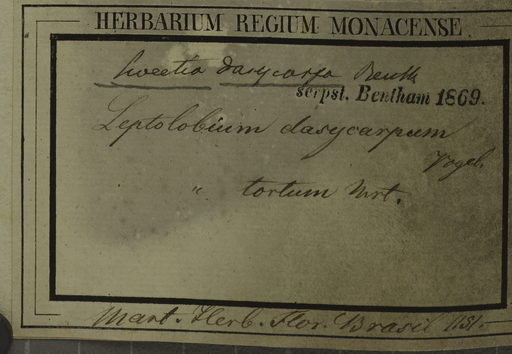 HERBARIUM REGIUM MONACENSE.
Sweetia dasycarpa Benth
scrpst. Bentham 1869.
Leptolobium dasycarpum
Vogel.
" tortum Mrt.
Mart. Herb. Flor. Brasil 1131.